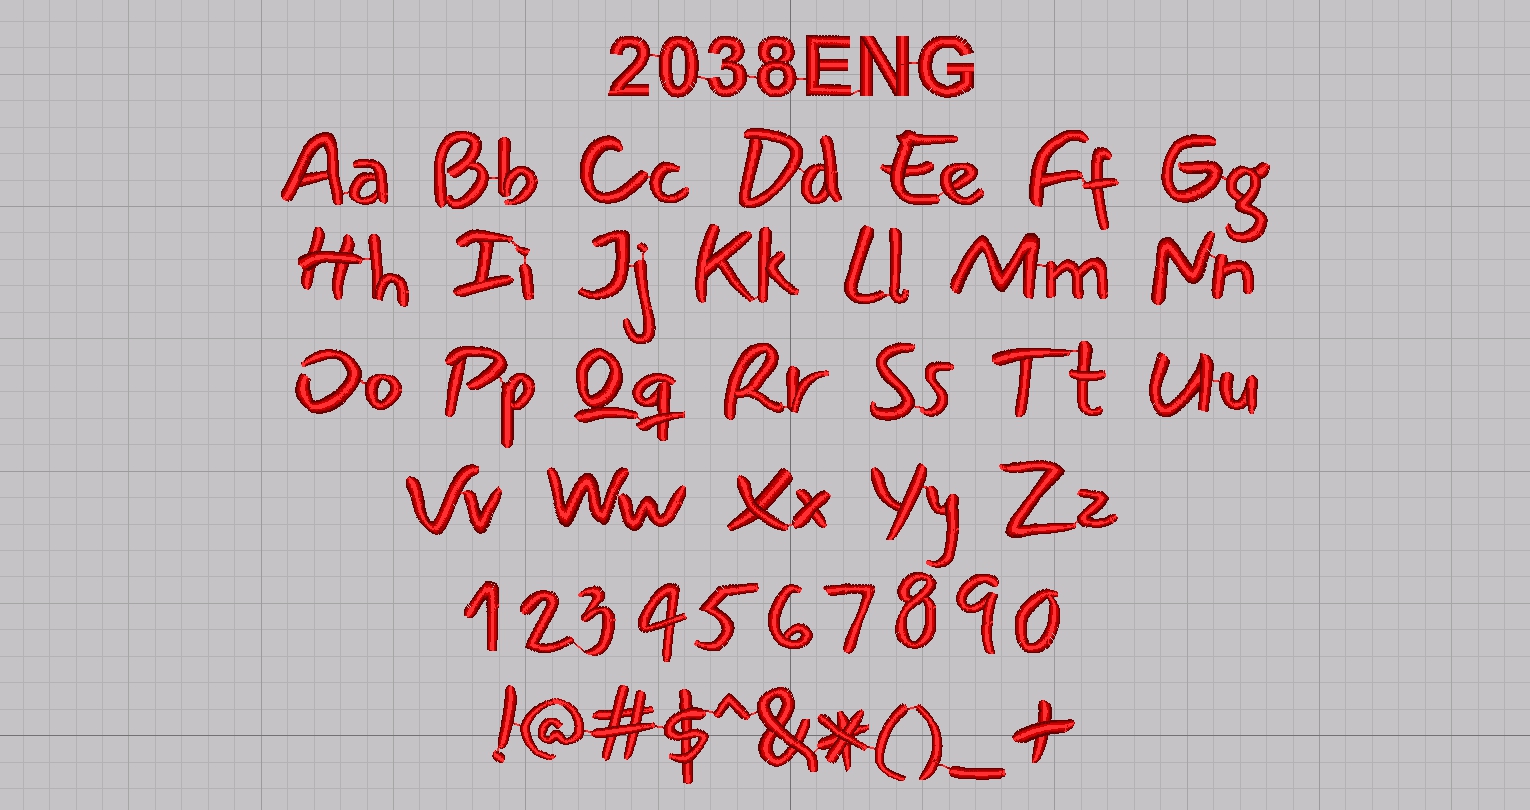 2038ENG
Aa Bb Cc Dd Ee Ff Gg
Hh Ii Jj Kk Ll Mm Nn
Oo Pp Qq Rr Ss Tt Uu
Vv Ww Xx Yy Zz
1 2 3 4 5 6 7 8 9 0
!@#$^&*()_+